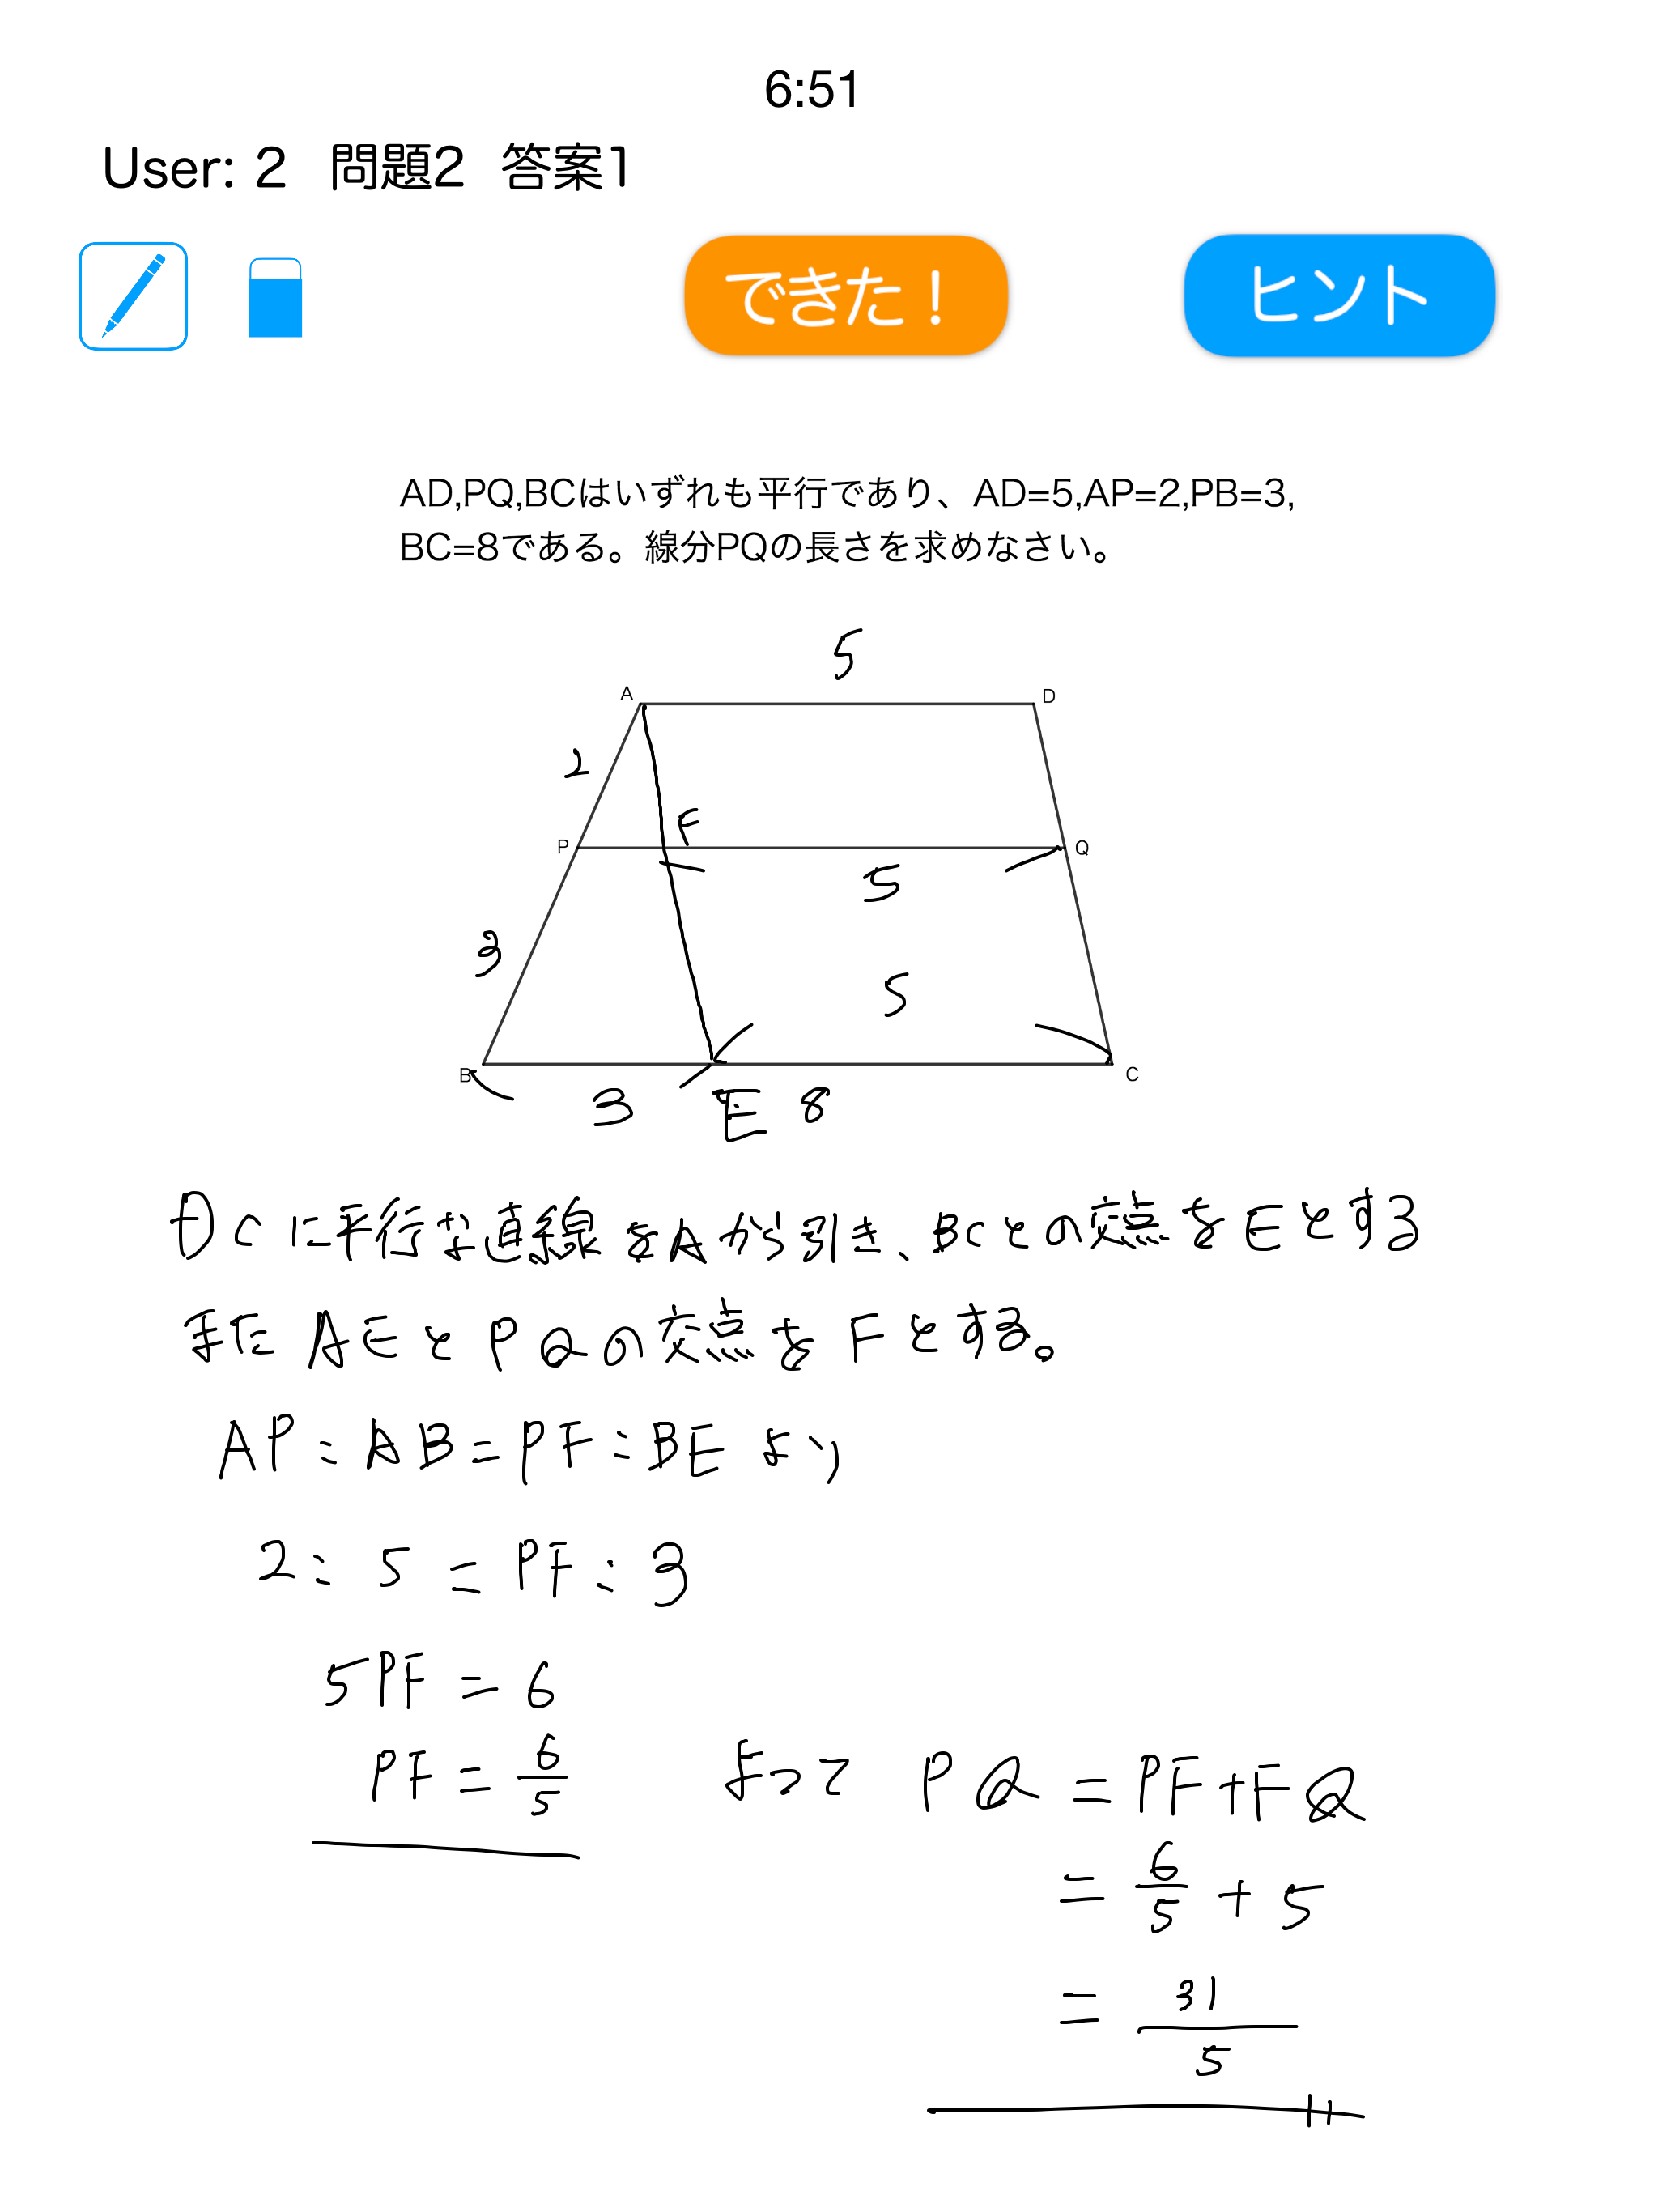 6:51
User: 2 問題2 答案1
できた！
ヒント
AD,PQ,BCはいずれも平行であり、AD=5,AP=2,PB=3,
BC=8である。線分PQの長さを求めなさい。
5
A
D
2
F
P
Q
5
3
5
B
C
3
E
8
DCに平行な直線をAから引き、BCとの交点をEとする
またAEとPQの交点をFとする。
AP:AB=PF:BEより
2:5=PF:3
5PF=6
PF=6/5
よってPQ=PF+FQ
=6/5+5
=31/5